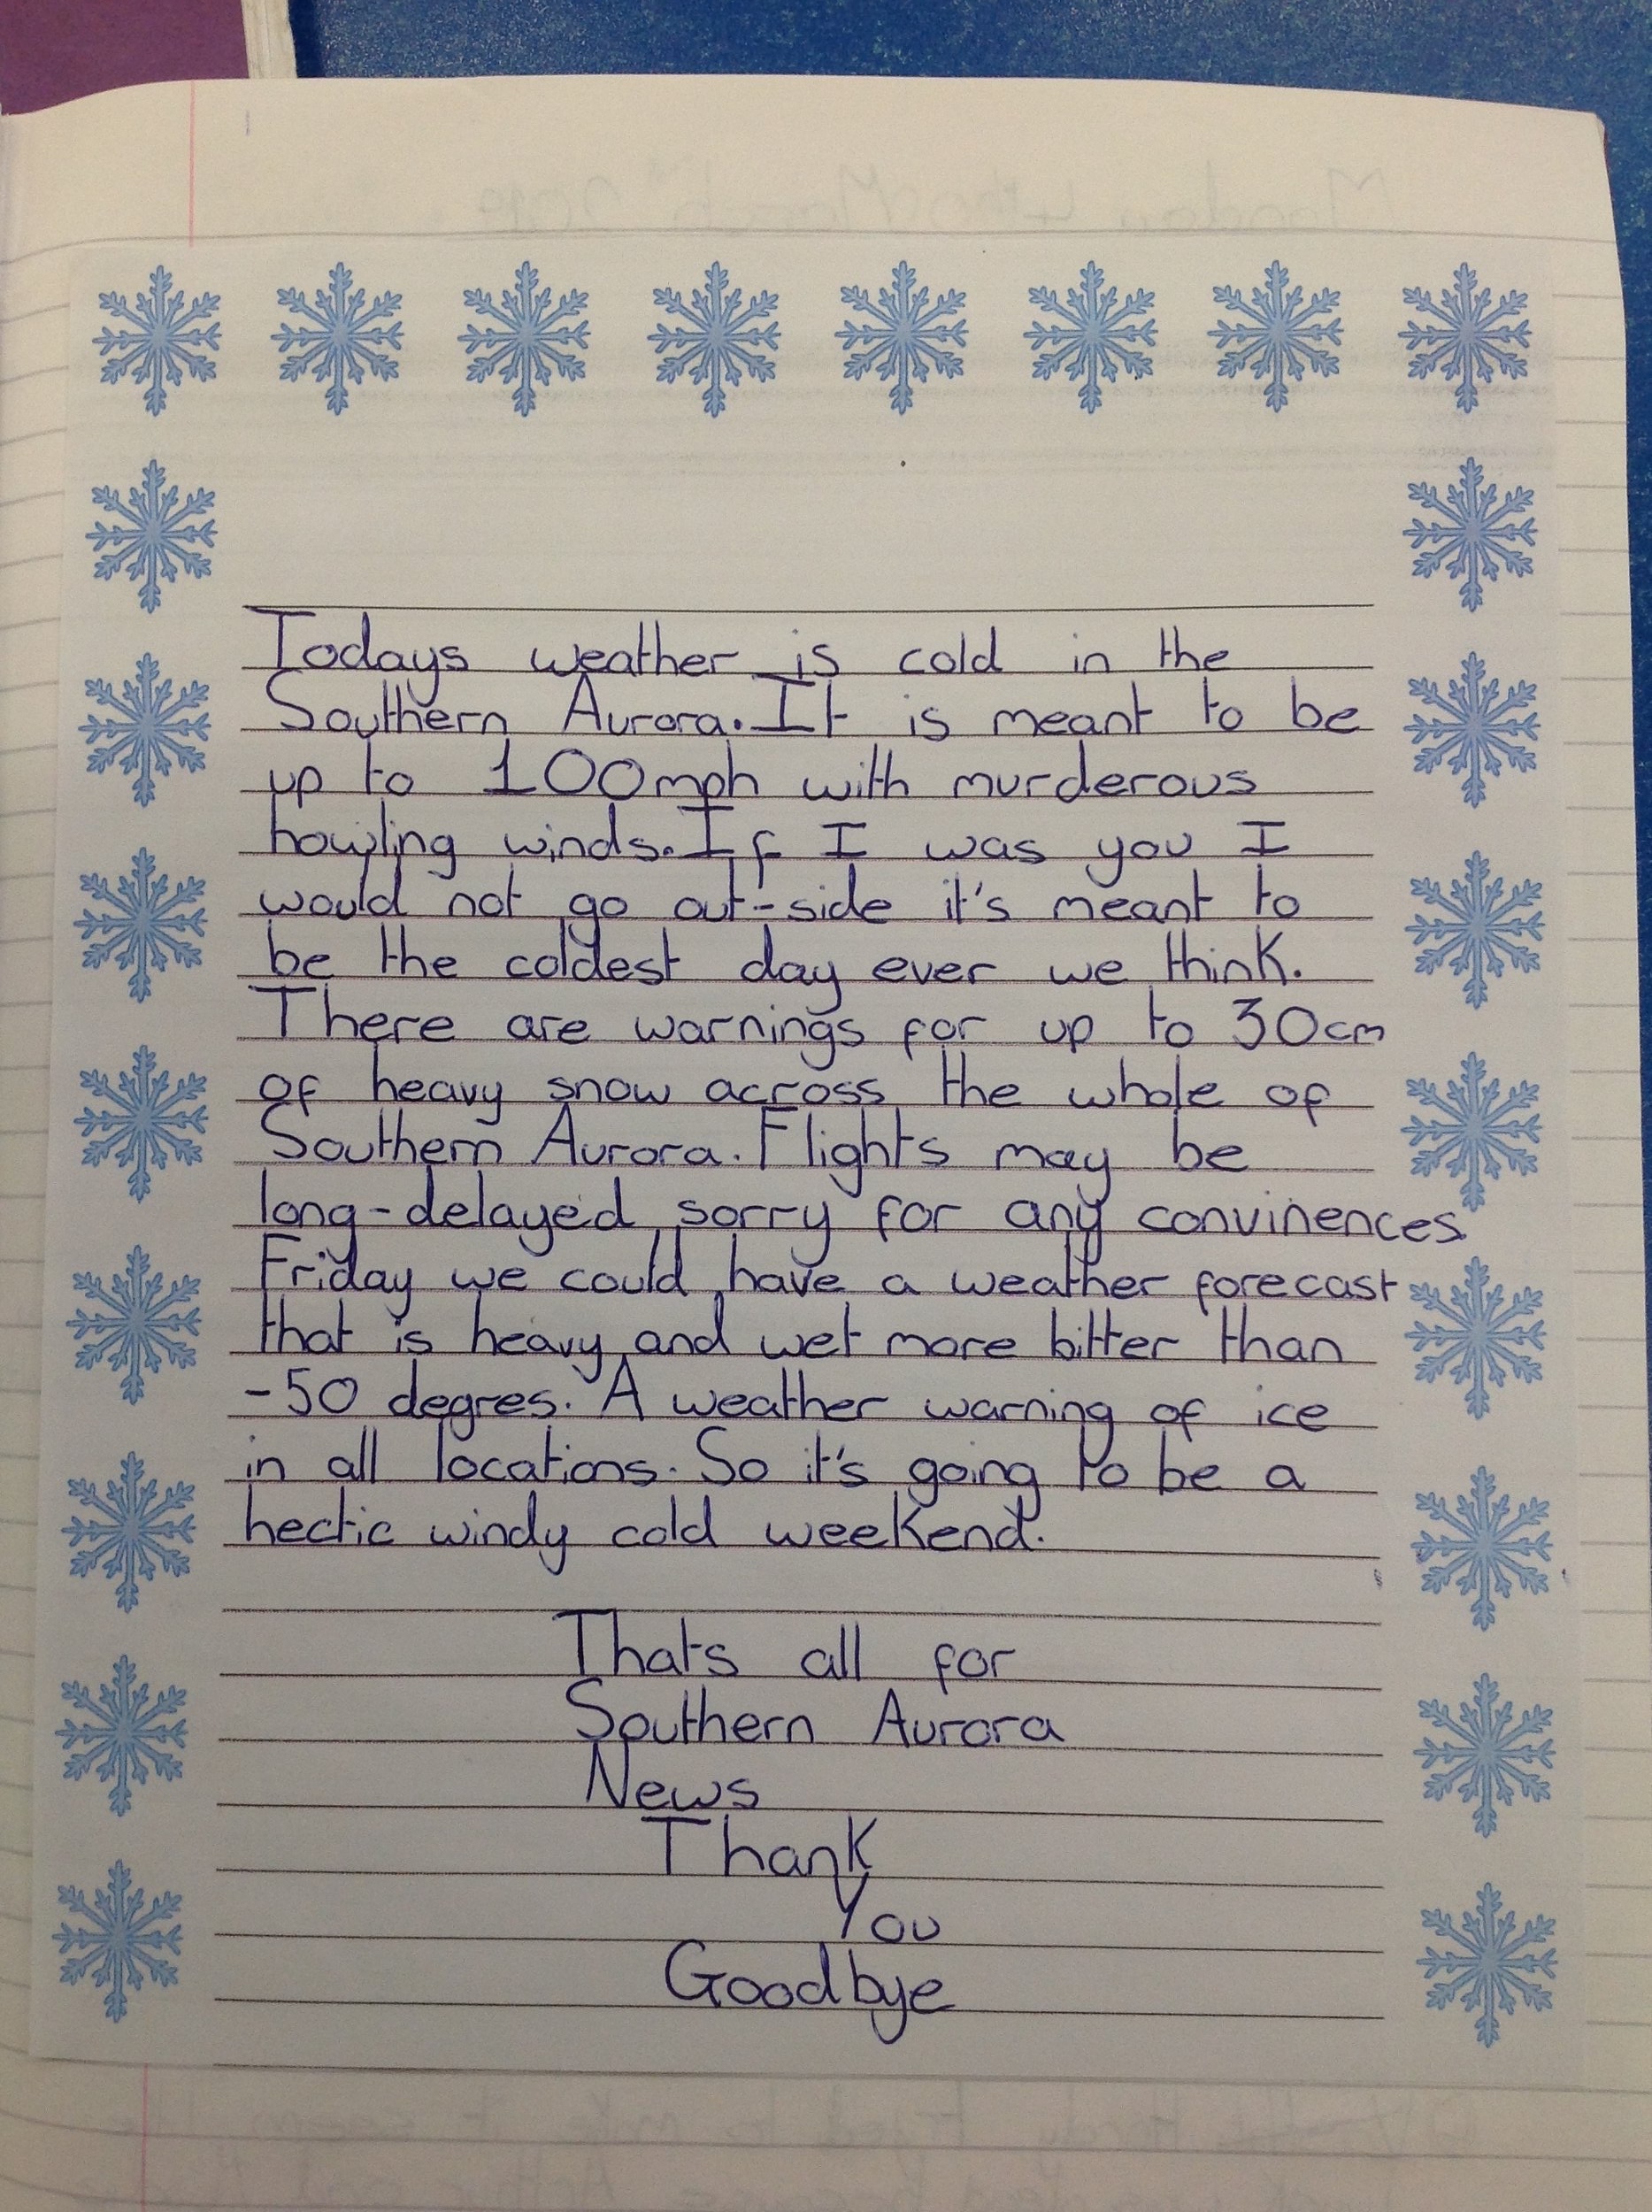 Todays weather is cold in the
Southern Aurora. It is meant to be
up to 100mph with murderous
howling winds. If I was you I
would not go out-side it's meant to
be the coldest day ever we think.
There are warnings for up to 30cm
of heavy snow across the whole of
Southern Aurora. Flights may be
long-delayed sorry for any convinences
Friday we could have a weather forecast
that is heavy and wet more bitter than
-50 degres. A weather warning of ice
in all locations. So it's going to be a
hectic windy cold weekend.
Thats all for
Southern Aurora
News
Thank
You
Goodbye